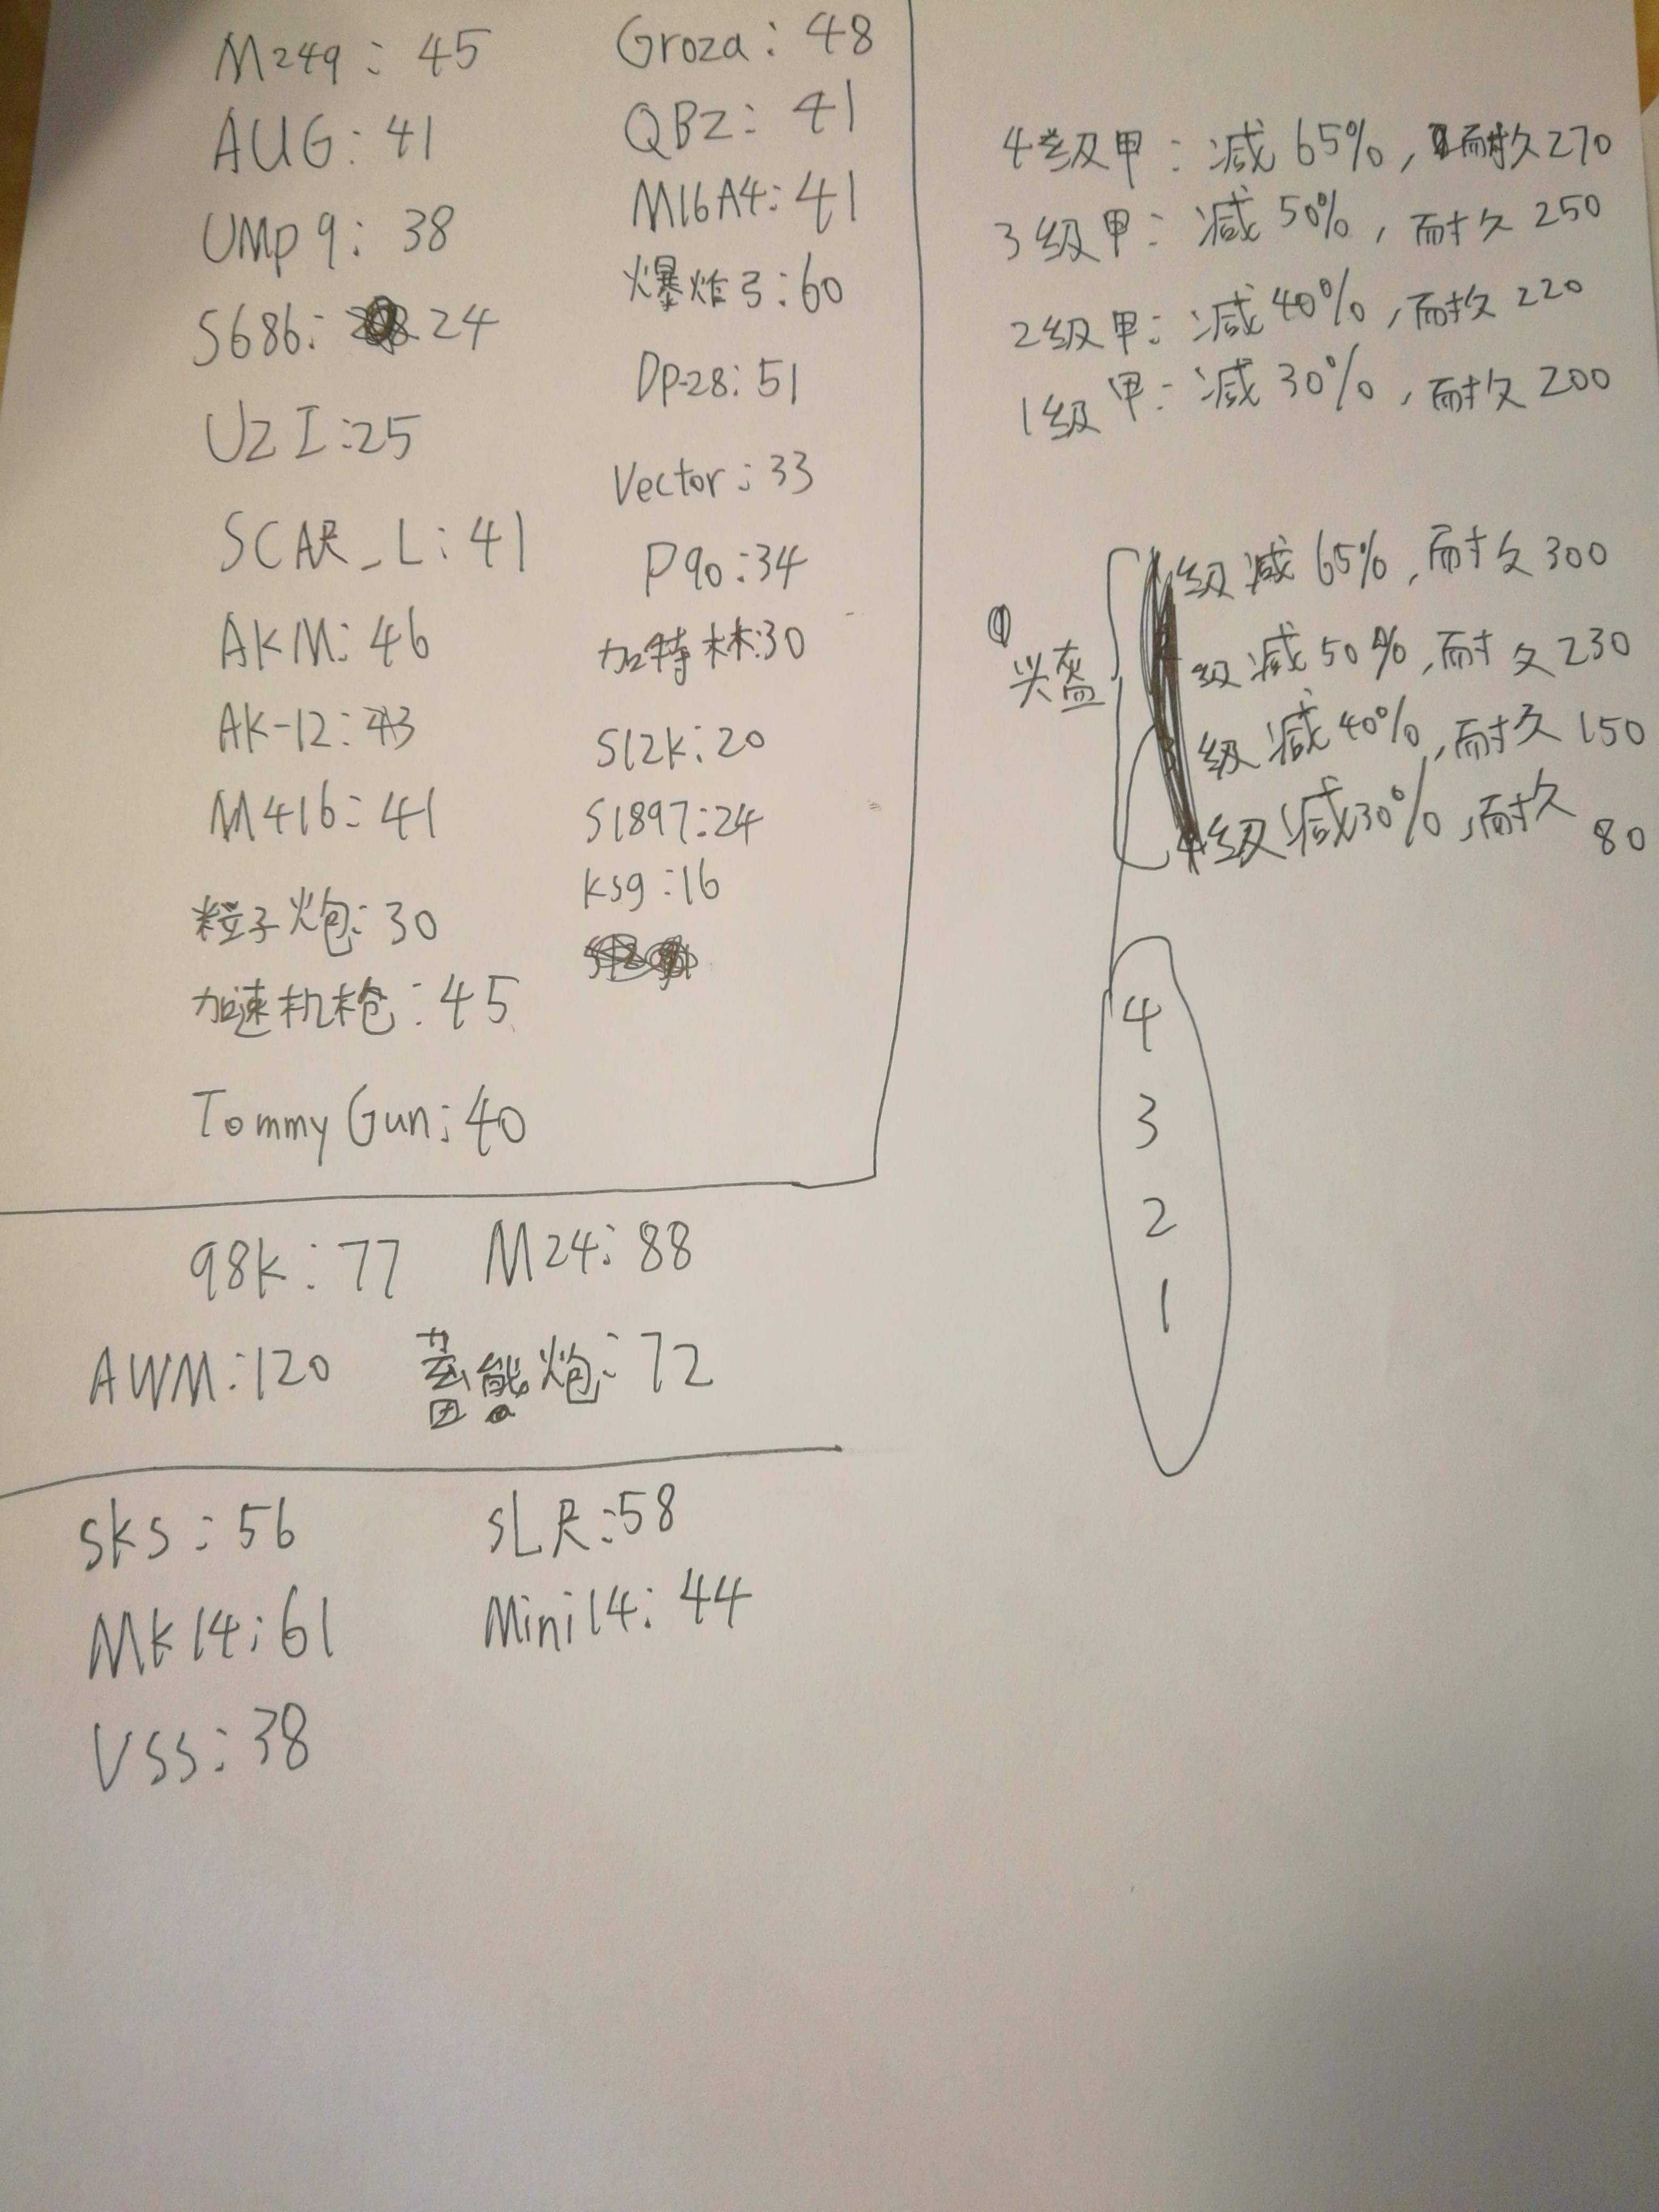 M249: 45
AUG: 41
UMP9: 38
S686: 24
UZI: 25
SCAR_L: 41
AKM: 46
AK-12: 43
M416: 41
粒子炮: 30
加速机枪: 45
Tommy Gun: 40
Groza: 48
QBZ: 41
M16A4: 41
爆炸弓: 60
DP-28: 51
Vector: 33
P90: 34
加特林: 30
S12K: 20
S1897: 24
KSg: 16
98K: 77
M24: 88
AWM: 120
蓄能炮: 72
SKS: 56
SLR: 58
MK14: 61
Mini14: 44
VSS: 38
4级甲: 减65%, 耐久270
3级甲: 减50%, 耐久250
2级甲: 减40%, 耐久220
1级甲: 减30%, 耐久200
头盔
级减65%, 耐久300
级减50%, 耐久230
级减40%, 耐久150
级减30%, 耐久80
4
3
2
1